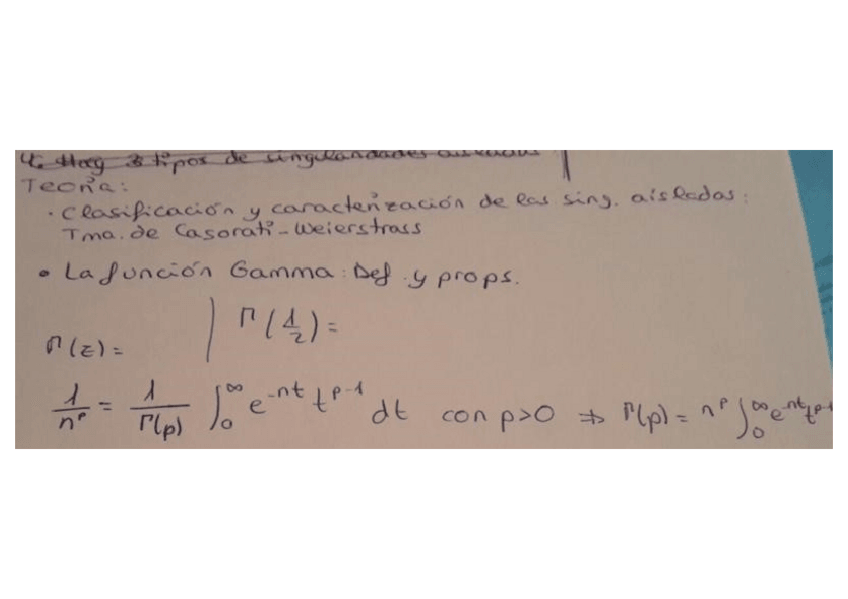 4. Hay 3 tipos de singularidades aisladas
Teoría:
· Clasificación y caracterización de las sing. aisladas:
Tma. de Casorati-Weierstrass
• La función Gamma: Def. y props.
Γ(z) = | Γ(1/2) =
1/n^p = 1/Γ(p) ∫₀^∞ e^{-nt} t^{p-1} dt con p>0 ⇒ Γ(p) = n^p ∫₀^∞ e^{-nt} t^{p-1}